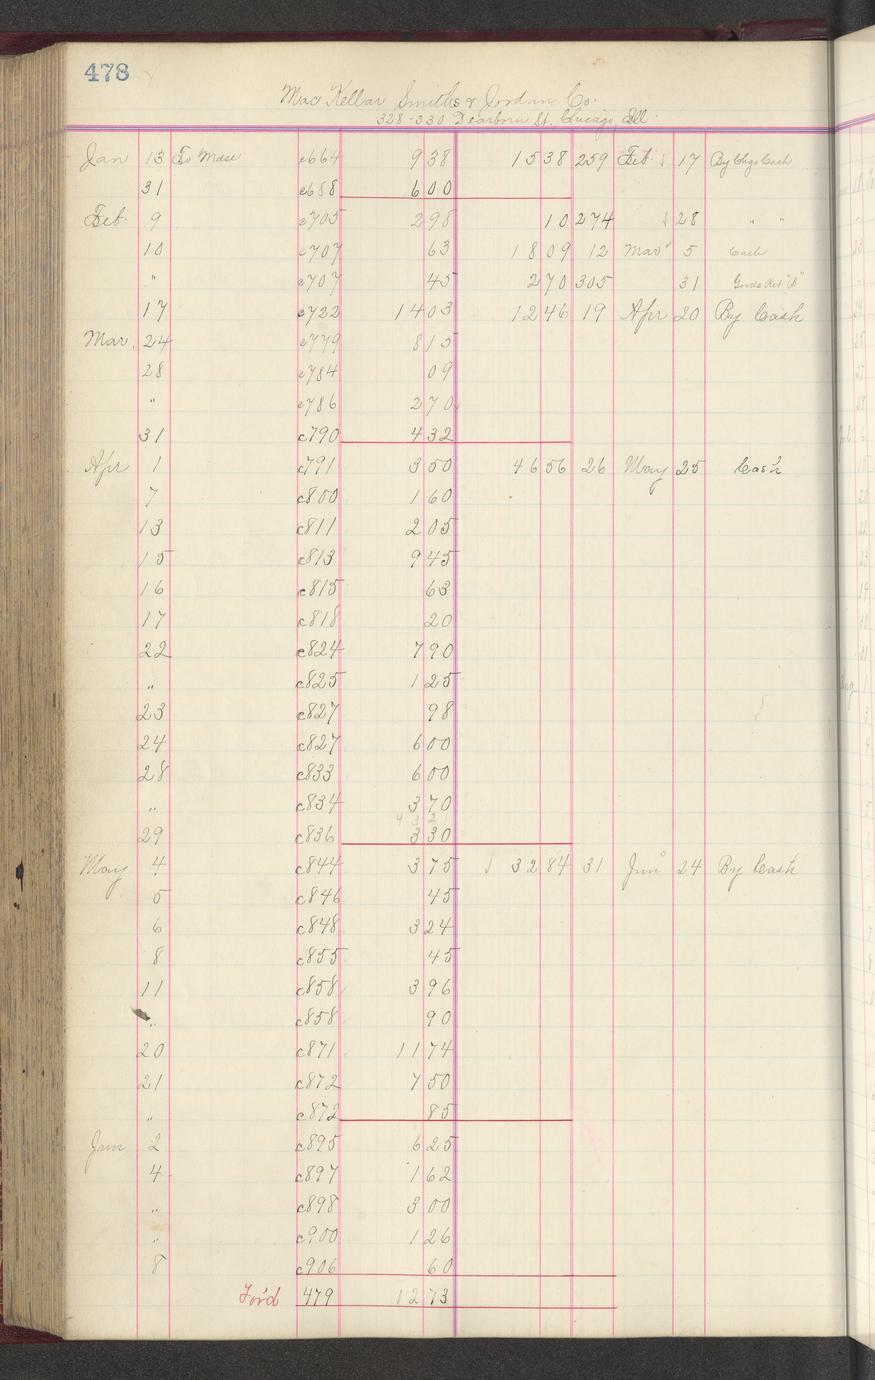 478
Mac Kellar Smiths & Jordan Co.
328-330 Dearborn St. Chicago, Ill.
Jan 13 To Mdse c664 9 38 15 38 259 Feb. 17 By Chgo Cash
31 c688 6 00
Feb. 9 c705 2 98 10 274 28 " "
10 c707 63 18 09 12 Mar 5 Cash
" c707 45 2 70 305 31 Goods Ret "B"
17 c722 14 03 12 46 19 Apr 20 By Cash
Mar. 24 c779 8 15
28 c784 09
" c786 2 70
31 c790 4 32
Apr 1 c791 3 50 46 56 26 May 25 Cash
7 c800 1 60
13 c811 2 05
15 c813 9 45
16 c815 63
17 c818 20
22 c824 7 90
" c825 1 25
23 c827 98
24 c827 6 00
28 c833 6 00
" c834 3 70
29 c836 3 30
May 4 c844 3 75 32 84 31 Jun 24 By Cash
5 c846 45
6 c848 3 24
8 c855 45
11 c858 3 96
" c858 90
20 c871 11 74
21 c872 7 50
" c872 85
Jun 2 c895 6 25
4 c897 1 62
" c898 3 00
" c900 1 26
8 c906 60
For'd 479 12 73